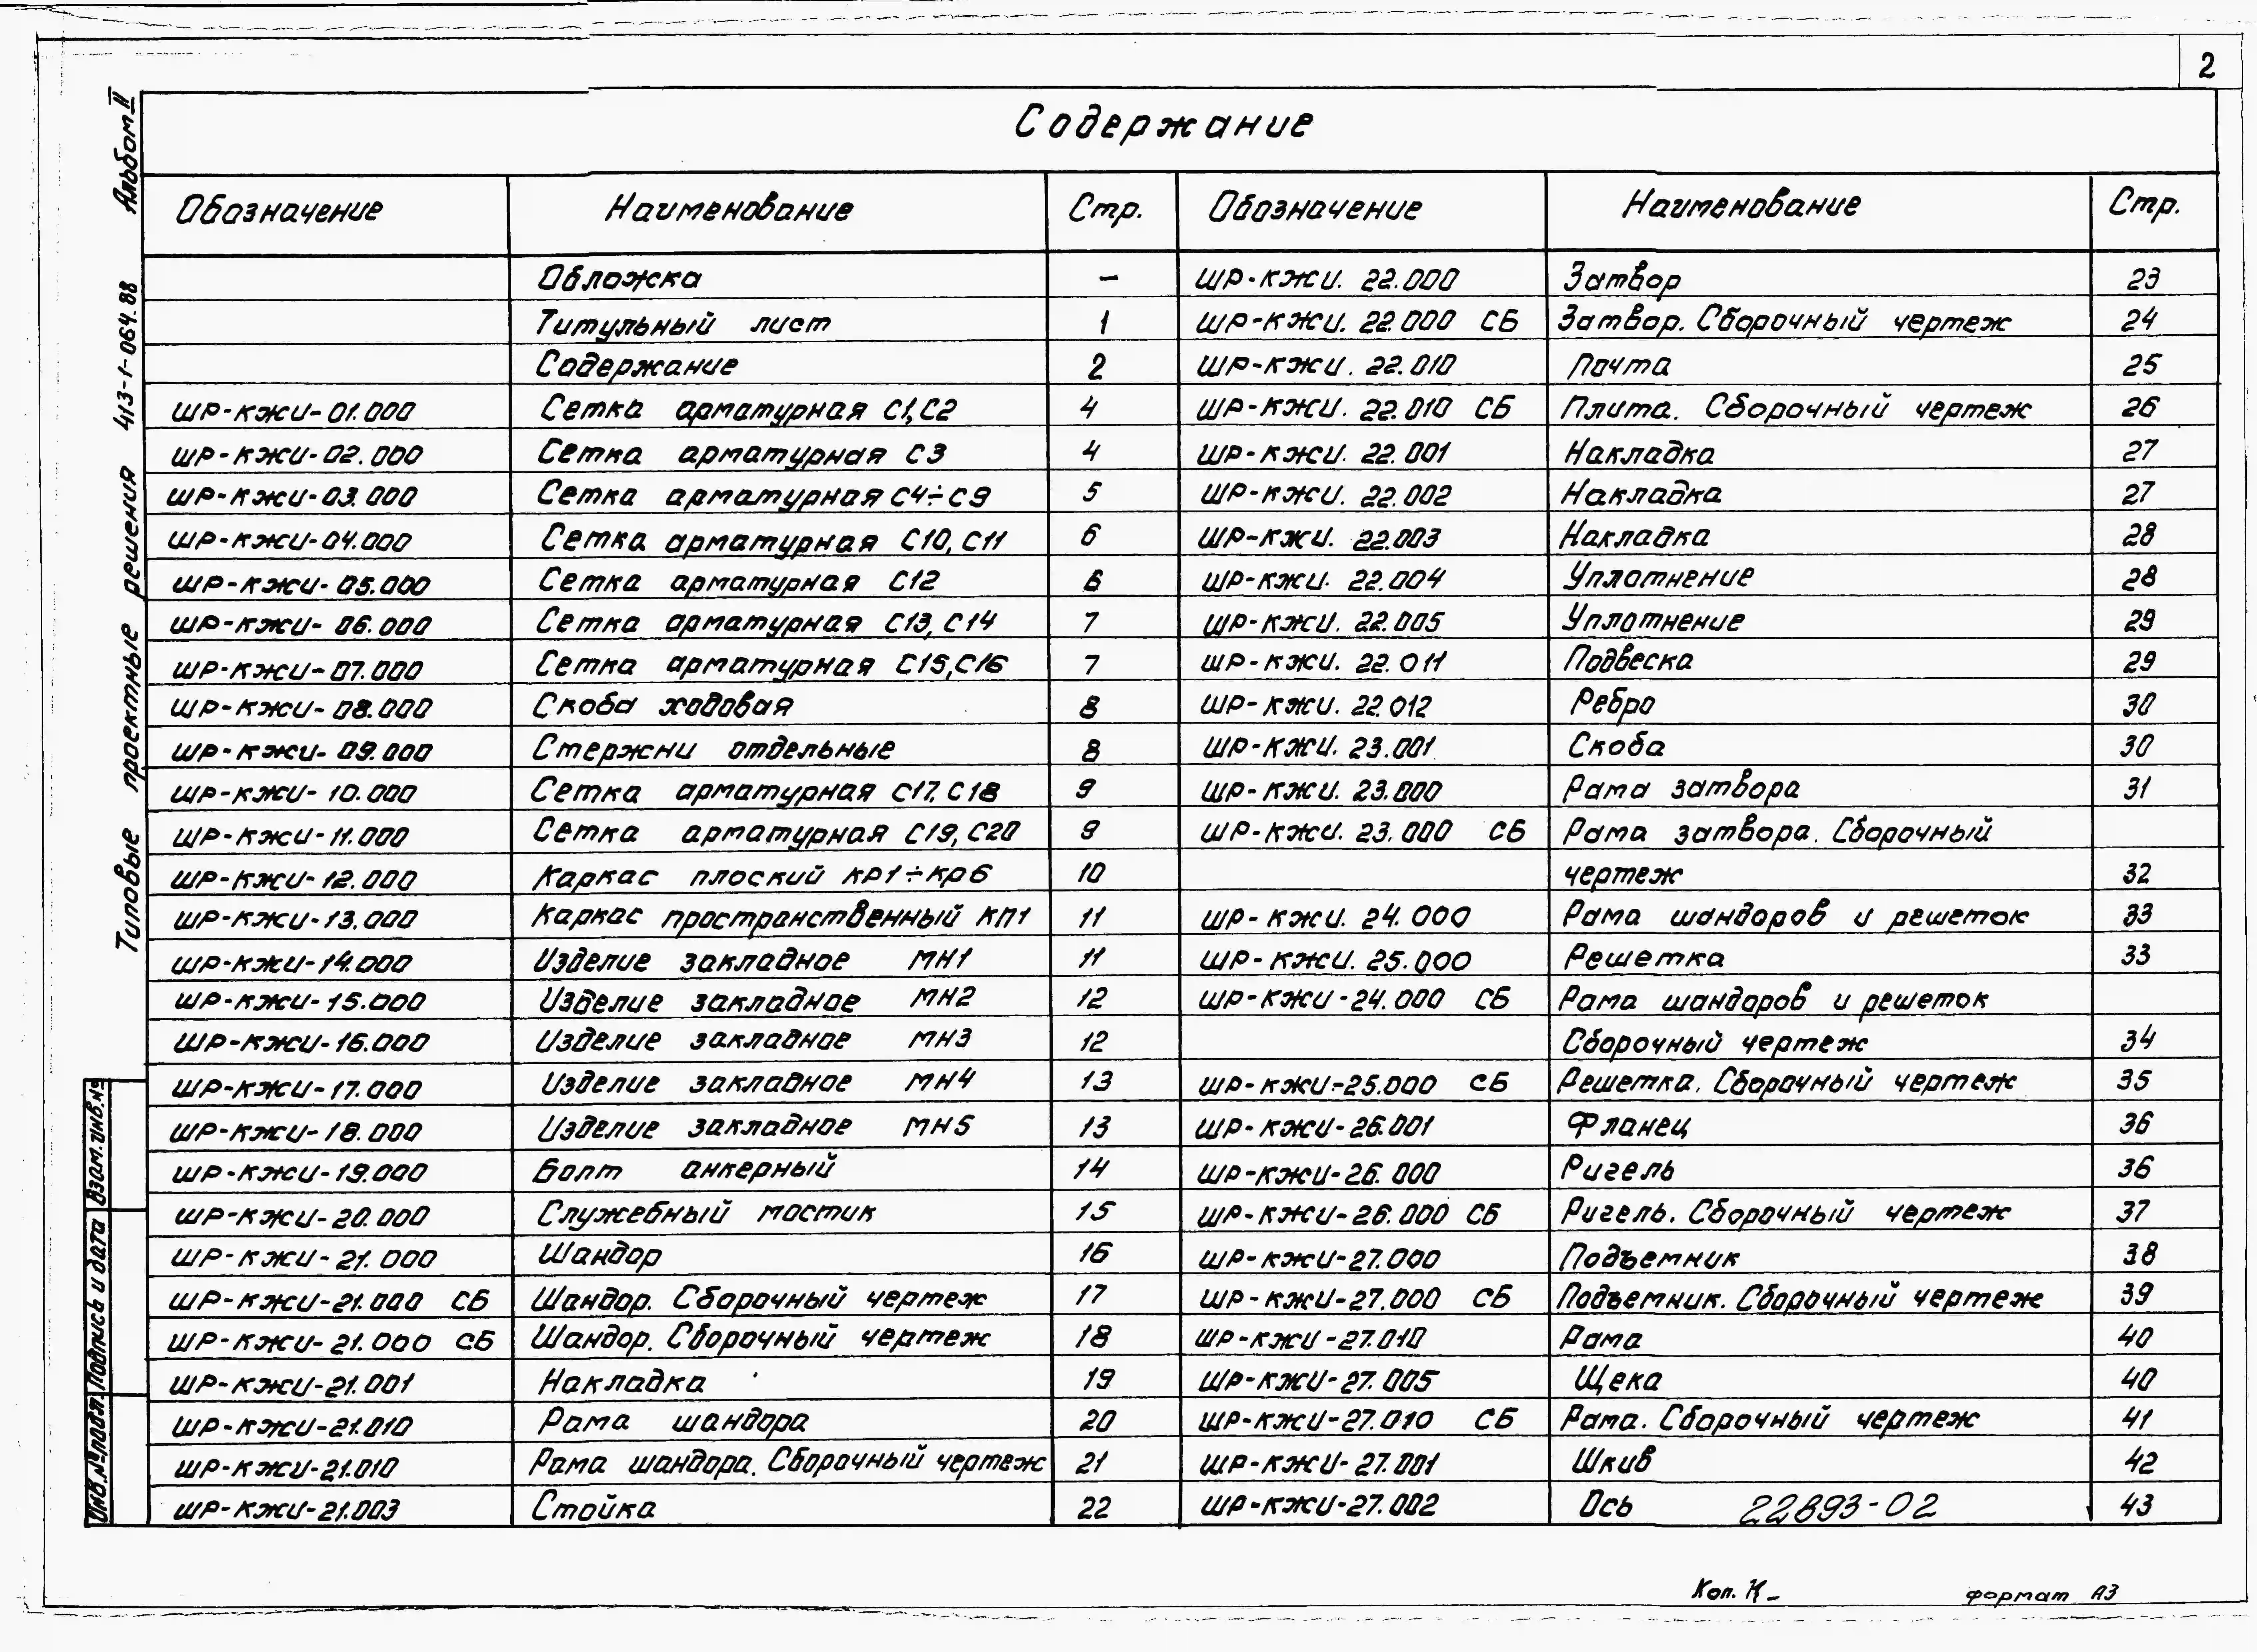 2
Альбом II
Типовые проектные решения 413-1-064.88
Содержание
Обозначение Наименование Стр. Обозначение Наименование Стр.
Обложка — ШР-КЖИ. 22.000 Затвор 23
Титульный лист 1 ШР-КЖИ. 22.000 СБ Затвор. Сборочный чертеж 24
Содержание 2 ШР-КЖИ. 22.010 Почта 25
ШР-КЖИ-01.000 Сетка арматурная С1,С2 4 ШР-КЖИ. 22.010 СБ Плита. Сборочный чертеж 26
ШР-КЖИ-02.000 Сетка арматурная С3 4 ШР-КЖИ. 22.001 Накладка 27
ШР-КЖИ-03.000 Сетка арматурная С4÷С9 5 ШР-КЖИ. 22.002 Накладка 27
ШР-КЖИ-04.000 Сетка арматурная С10, С11 6 ШР-КЖИ. 22.003 Накладка 28
ШР-КЖИ-05.000 Сетка арматурная С12 6 ШР-КЖИ. 22.004 Уплотнение 28
ШР-КЖИ-06.000 Сетка арматурная С13, С14 7 ШР-КЖИ. 22.005 Уплотнение 29
ШР-КЖИ-07.000 Сетка арматурная С15,С16 7 ШР-КЖИ. 22.011 Подвеска 29
ШР-КЖИ-08.000 Скоба ходовая 8 ШР-КЖИ. 22.012 Ребро 30
ШР-КЖИ-09.000 Стержни отдельные 8 ШР-КЖИ. 23.001 Скоба 30
ШР-КЖИ-10.000 Сетка арматурная С17, С18 9 ШР-КЖИ. 23.000 Рама затвора 31
ШР-КЖИ-11.000 Сетка арматурная С19, С20 9 ШР-КЖИ. 23.000 СБ Рама затвора. Сборочный
ШР-КЖИ-12.000 Каркас плоский КР1÷КР6 10 чертеж 32
ШР-КЖИ-13.000 Каркас пространственный КП1 11 ШР-КЖИ. 24.000 Рама шандоров и решеток 33
ШР-КЖИ-14.000 Изделие закладное МН1 11 ШР-КЖИ. 25.000 Решетка 33
ШР-КЖИ-15.000 Изделие закладное МН2 12 ШР-КЖИ-24.000 СБ Рама шандоров и решеток
ШР-КЖИ-16.000 Изделие закладное МН3 12 Сборочный чертеж 34
ШР-КЖИ-17.000 Изделие закладное МН4 13 ШР-КЖИ-25.000 СБ Решетка. Сборочный чертеж 35
ШР-КЖИ-18.000 Изделие закладное МН5 13 ШР-КЖИ-26.001 Фланец 36
ШР-КЖИ-19.000 Болт анкерный 14 ШР-КЖИ-26.000 Ригель 36
ШР-КЖИ-20.000 Служебный мостик 15 ШР-КЖИ-26.000 СБ Ригель. Сборочный чертеж 37
ШР-КЖИ-21.000 Шандор 16 ШР-КЖИ-27.000 Подъемник 38
ШР-КЖИ-21.000 СБ Шандор. Сборочный чертеж 17 ШР-КЖИ-27.000 СБ Подъемник. Сборочный чертеж 39
ШР-КЖИ-21.000 СБ Шандор. Сборочный чертеж 18 ШР-КЖИ-27.010 Рама 40
ШР-КЖИ-21.001 Накладка 19 ШР-КЖИ-27.005 Щека 40
ШР-КЖИ-21.010 Рама шандора 20 ШР-КЖИ-27.010 СБ Рама. Сборочный чертеж 41
ШР-КЖИ-21.010 Рама шандора. Сборочный чертеж 21 ШР-КЖИ-27.001 Шкив 42
ШР-КЖИ-21.003 Стойка 22 ШР-КЖИ-27.002 Ось 22893-02 43
Взам.инв.№
Подпись и дата
Инв.№подл.
Коп. формат А3